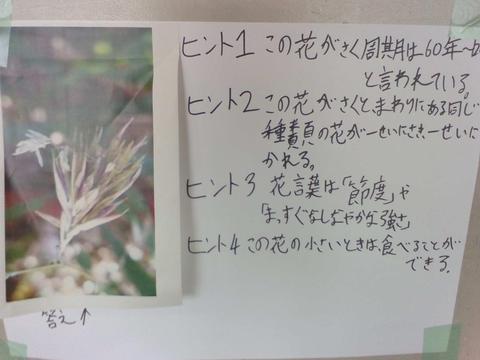 ヒント1 この花がさく周期は60年〜
と言われている。
ヒント2 この花がさくと、まわりにある同じ
種類の花が一せいにさき、一せいに
かれる。
ヒント3 花言葉は「節度」や
「まっすぐなしなやかな強さ」
ヒント4 この花の小さいときは食べることが
できる。
答え↑